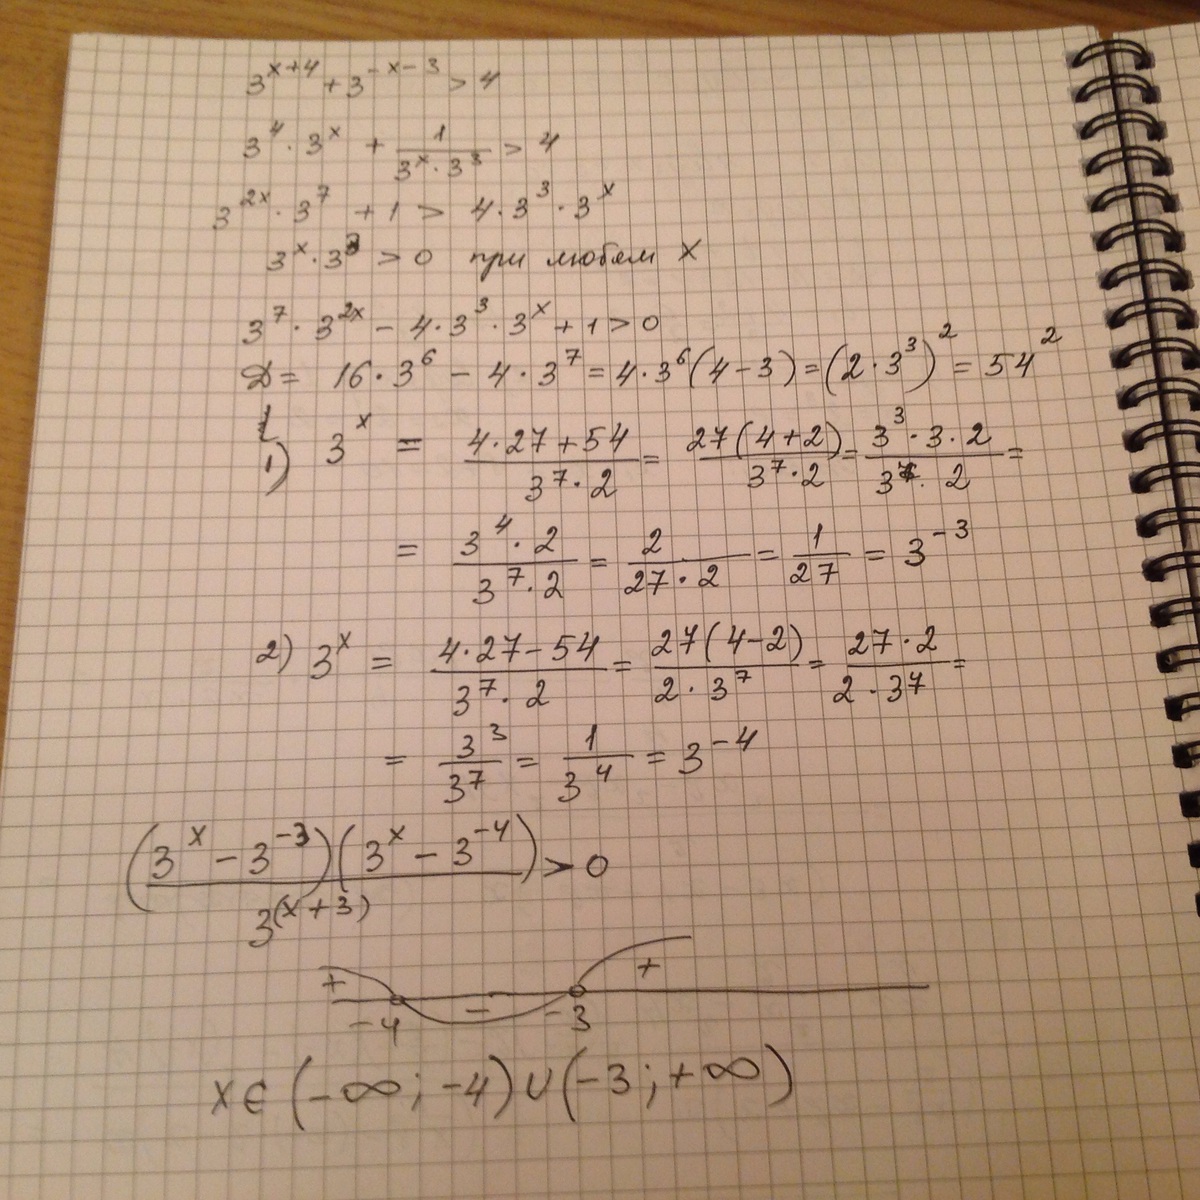 3^{x+4} + 3^{-x-3} > 4
3^4 · 3^x + 1/(3^x · 3^3) > 4
3^{2x} · 3^7 + 1 > 4 · 3^3 · 3^x
3^x · 3^3 > 0 при любом x
3^7 · 3^{2x} - 4 · 3^3 · 3^x + 1 > 0
D = 16 · 3^6 - 4 · 3^7 = 4 · 3^6 (4 - 3) = (2 · 3^3)^2 = 54^2
1) 3^x = (4 · 27 + 54)/(3^7 · 2) = 27(4 + 2)/(3^7 · 2) = (3^3 · 3 · 2)/(3^7 · 2) =
= (3^4 · 2)/(3^7 · 2) = 2/(27 · 2) = 1/27 = 3^{-3}
2) 3^x = (4 · 27 - 54)/(3^7 · 2) = 27(4 - 2)/(2 · 3^7) = (27 · 2)/(2 · 3^7) =
= 3^3/3^7 = 1/3^4 = 3^{-4}
(3^x - 3^{-3})(3^x - 3^{-4})/3^{(x+3)} > 0
+ - +
-4 -3
x ∈ (-∞; -4) ∪ (-3; +∞)